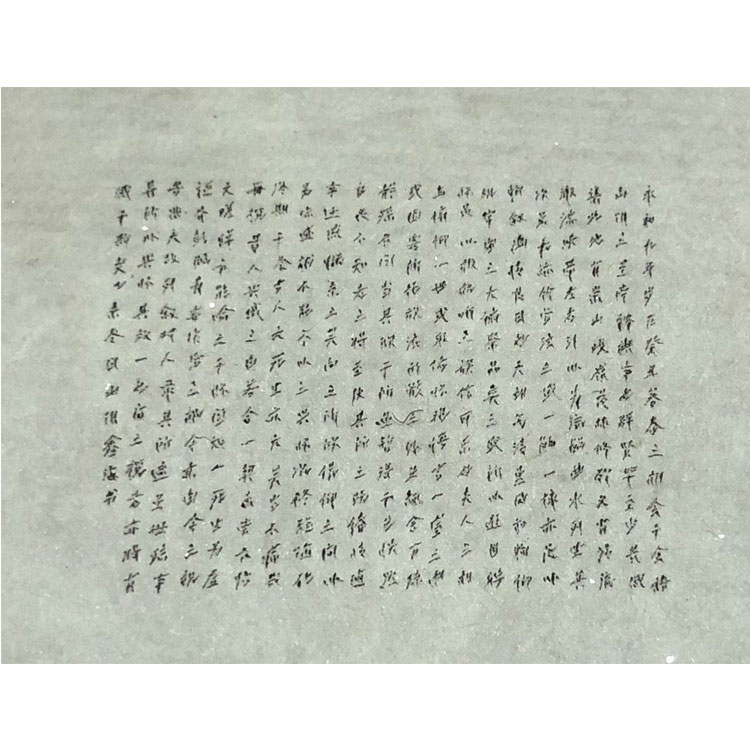 永和九年歲在癸丑暮春之初會于會稽
山陰之蘭亭脩禊事也群賢畢至少長咸
集此地有崇山峻嶺茂林脩竹又有清流
激湍映帶左右引以為流觴曲水列坐其
次雖無絲竹管弦之盛一觴一詠亦足以
暢敘幽情是日也天朗氣清惠風和暢仰
觀宇宙之大俯察品類之盛所以遊目騁
懷足以極視聽之娛信可樂也夫人之相
與俯仰一世或取諸懷抱悟言一室之內
或因寄所託放浪形骸之外雖趣舍萬殊
靜躁不同當其欣於所遇暫得於己快然
自足不知老之將至及其所之既倦情隨
事遷感慨係之矣向之所欣俛仰之間以
為陳迹猶不能不以之興懷況脩短隨化
終期於盡古人云死生亦大矣豈不痛哉
每攬昔人興感之由若合一契未嘗不臨
文嗟悼不能喻之於懷固知一死生為虛
誕齊彭殤為妄作後之視今亦由今之視
昔悲夫故列敘時人錄其所述雖世殊事
異所以興懷其致一也後之攬者亦將有
感於斯文 冬日山陰 書